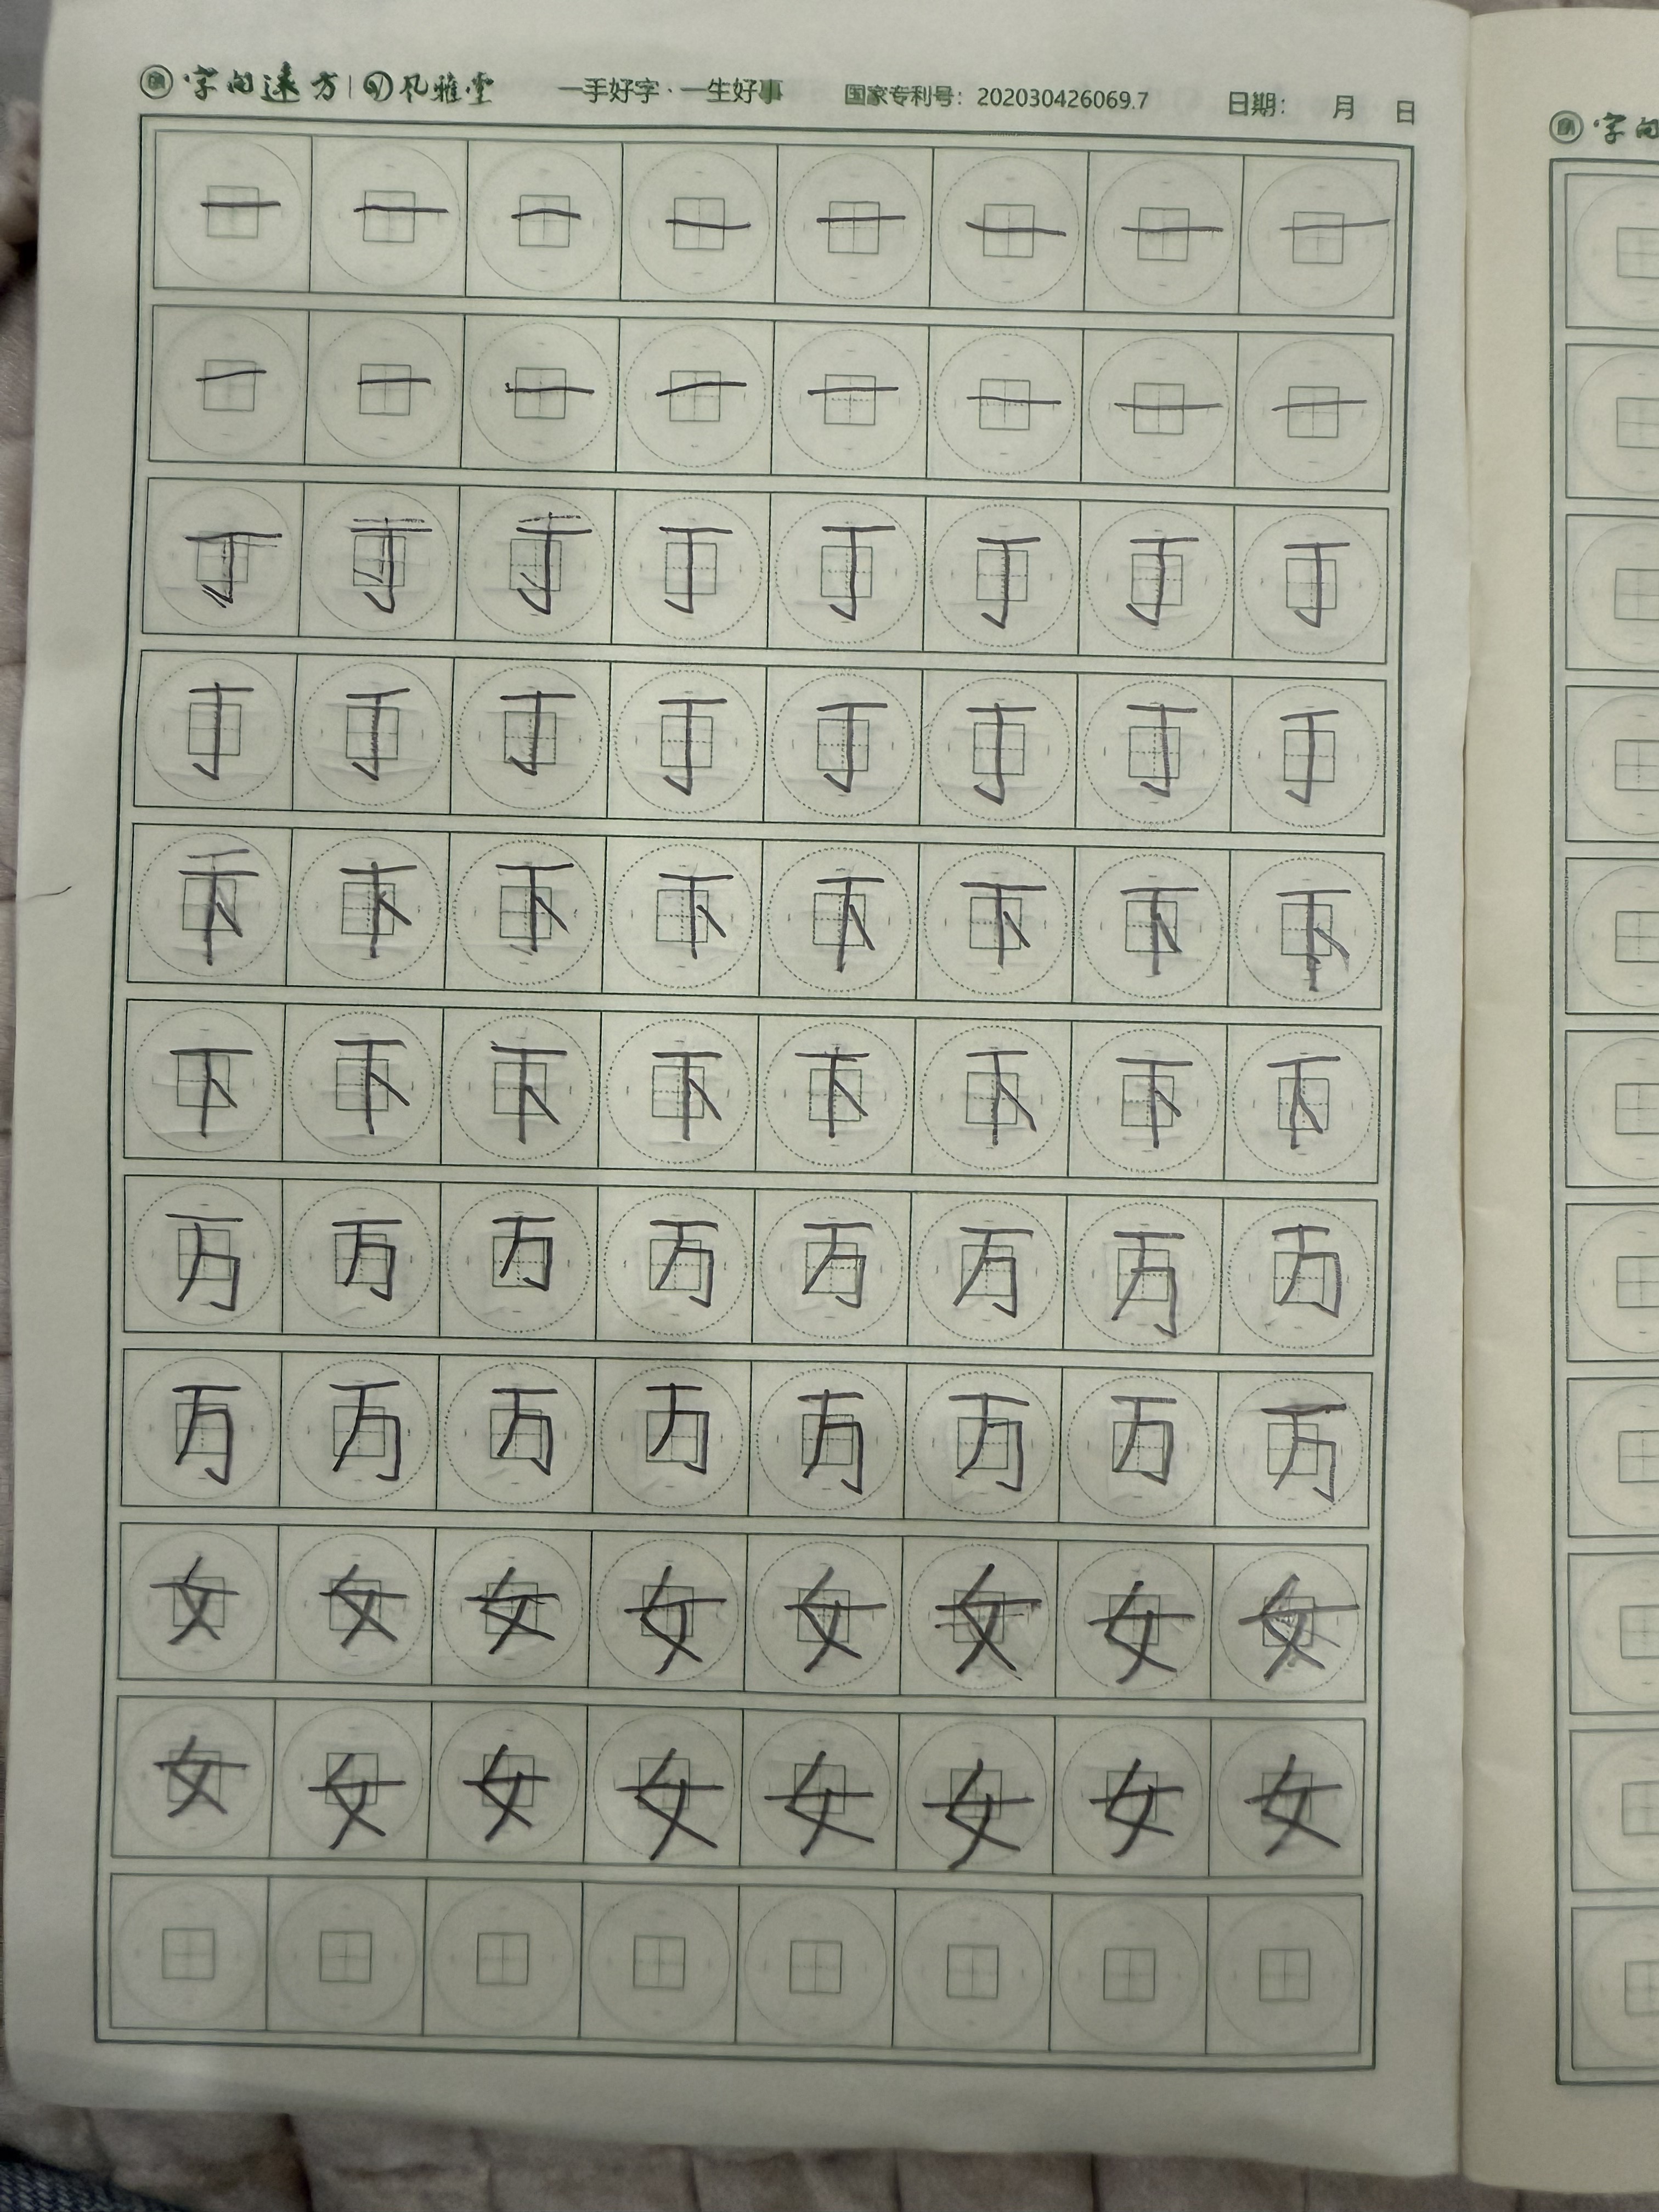 字向远方 风雅堂 一手好字·一生好事 国家专利号：202030426069.7 日期： 月 日
一 一 一 一 一 一 一 一
一 一 一 一 一 一 一 一
丁 丁 丁 丁 丁 丁 丁 丁
丁 丁 丁 丁 丁 丁 丁 丁
下 下 下 下 下 下 下 下
下 下 下 下 下 下 下 下
万 万 万 万 万 万 万 万
万 万 万 万 万 万 万 万
女 女 女 女 女 女 女 女
女 女 女 女 女 女 女 女
字向